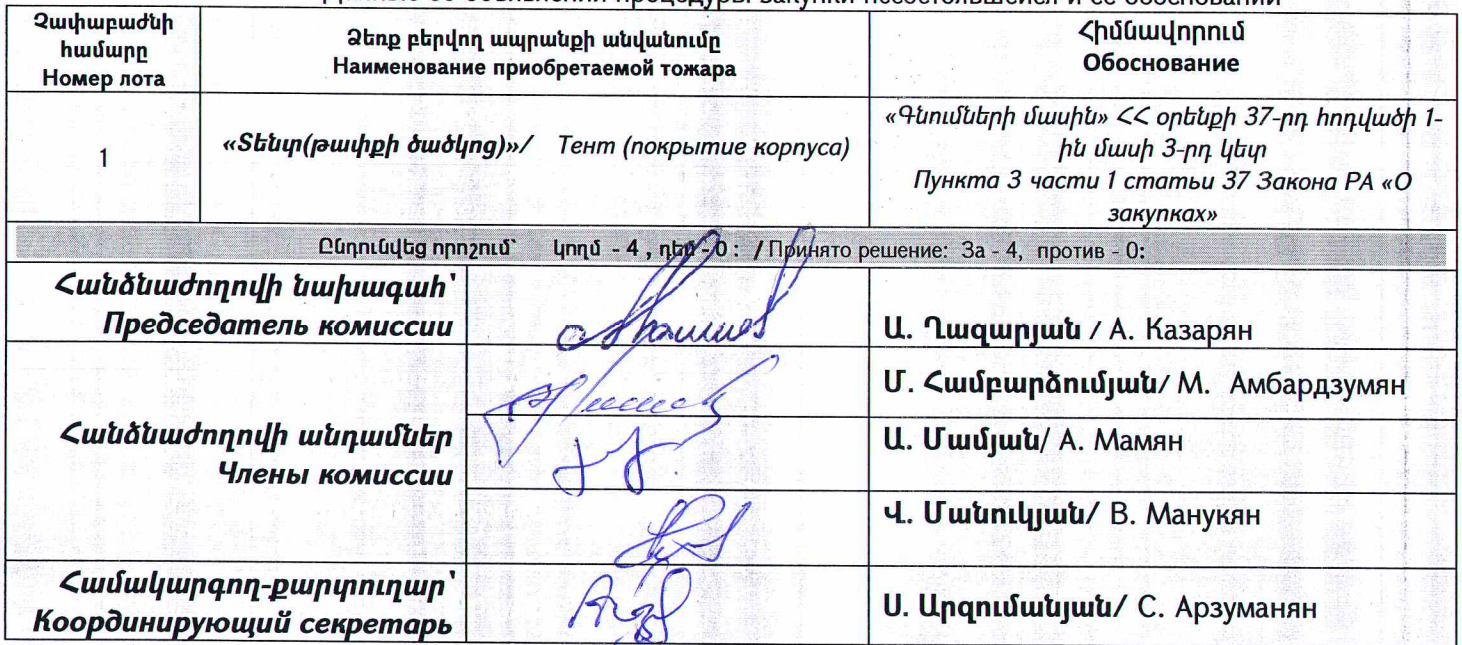 Չափաբաժնի համարը
Номер лота
Ձեռք բերվող ապրանքի անվանումը
Наименование приобретаемой тожара
Հիմնավորում
Обоснование
1
«Տենտ(թափքի ծածկոց)»/ Тент (покрытие корпуса)
«Գնումների մասին» ՀՀ օրենքի 37-րդ հոդվածի 1-
ին մասի 3-րդ կետ
Пункта 3 части 1 статьи 37 Закона РА «О
закупках»
Ընդունվեց որոշում՝ կողմ - 4 , դեմ - 0 : / Принято решение: За - 4, против - 0:
Հանձնաժողովի նախագահ՝
Председатель комиссии
Ա. Ղազարյան / А. Казарян
Հանձնաժողովի անդամներ
Члены комиссии
Մ. Համբարձումյան/ М. Амбардзумян
Ա. Մամյան/ А. Мамян
Վ. Մանուկյան/ В. Манукян
Համակարգող-քարտուղար՝
Координирующий секретарь
Ս. Արզումանյան/ С. Арзуманян